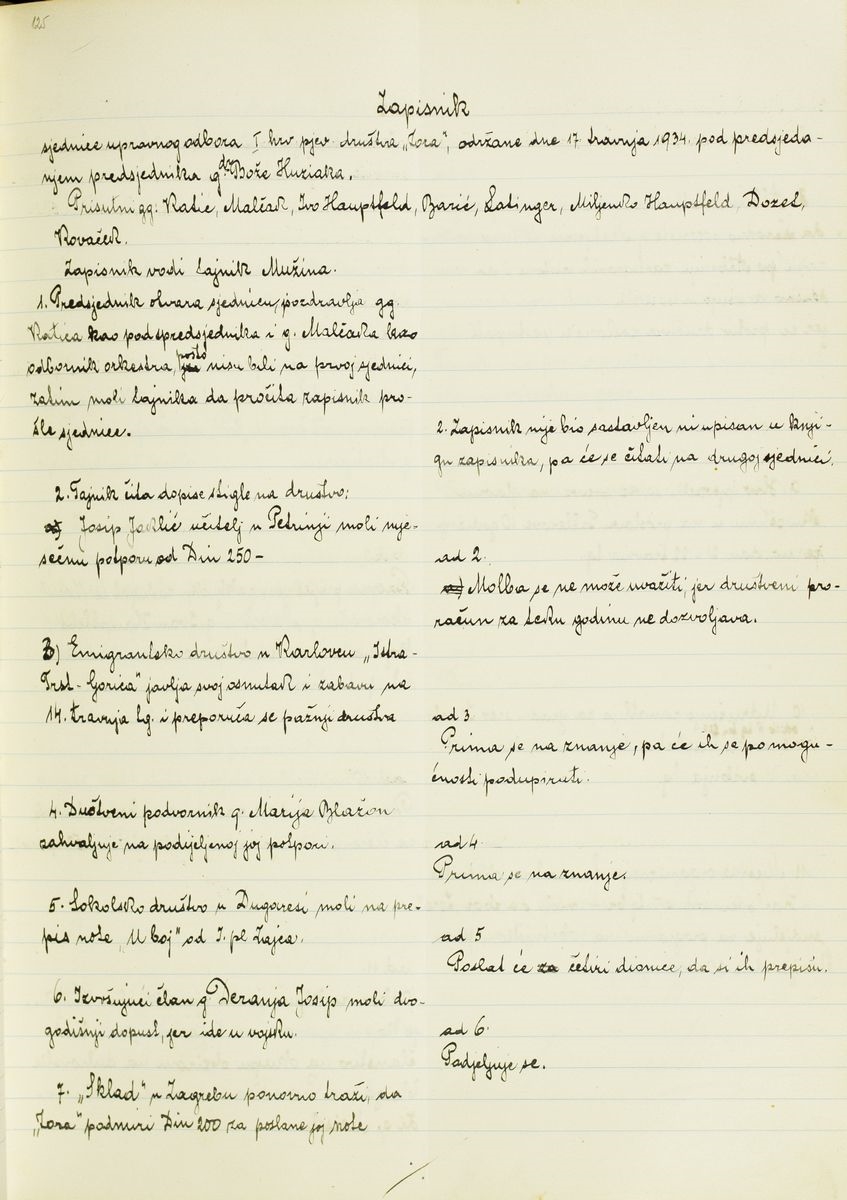 125
Zapisnik
sjednice upravnog odbora I hrv pjev. društva „Zora", održane dne 17 travnja 1934. pod predsjeda-
njem predsjednika g dra Bože Huziaka.
Prisutni gg: Katić, Malčak, Ivo Hauptfeld, Barić, Satinger, Miljenko Hauptfeld, Dozet,
Kovaček.
Zapisnik vodi tajnik Mužina.
1. Predsjednik otvara sjednicu, pozdravlja gg.
Katića kao podspredsjednika i g. Malčaka kao
odbornik orkestra, pošto nisu bili na prvoj sjednici,
zatim moli tajnika da pročita zapisnik pro-
šle sjednice.
2. Zapisnik nije bio sastavljen ni upisan u knji-
gu zapisnika, pa će se čitati na drugoj sjednici.
2. Tajnik čita dopise stigle na društvo:
a) Josip Jaklić učitelj u Petrinji moli mje-
sečnu potporu od Din 250-
ad 2.
a) Molba se ne može uvažiti, jer društveni pro-
račun za teku godinu ne dozvoljava.
3) Emigrantsko društvo u Karlovcu „Istra-
Trst-Gorica" javlja svoj osnutak i zabavu na
14. travnja tg. i preporuča se pažnji društva
ad 3
Prima se na znanje, pa će ih se po mogu-
ćnosti podupirati.
4. Duštveni podvornik g. Marija Blažon
zahvaljuje na podijeljenoj joj potpori.
ad 4.
Prima se na znanje.
5. Sokolsko društvo u Dugaresi moli na pre-
pis note „U boj" od I. pl Zajca.
ad 5
Poslat će za četiri dionice, da si ih prepišu.
6. Izvršujući član g Deranja Josip moli dvo-
godišnji dopust, jer ide u vojsku.
ad 6.
Podjeljuje se.
7. „Sklad" u Zagrebu ponovno traži, da
„Zora" podmiri Din 200 za poslane joj note
./.